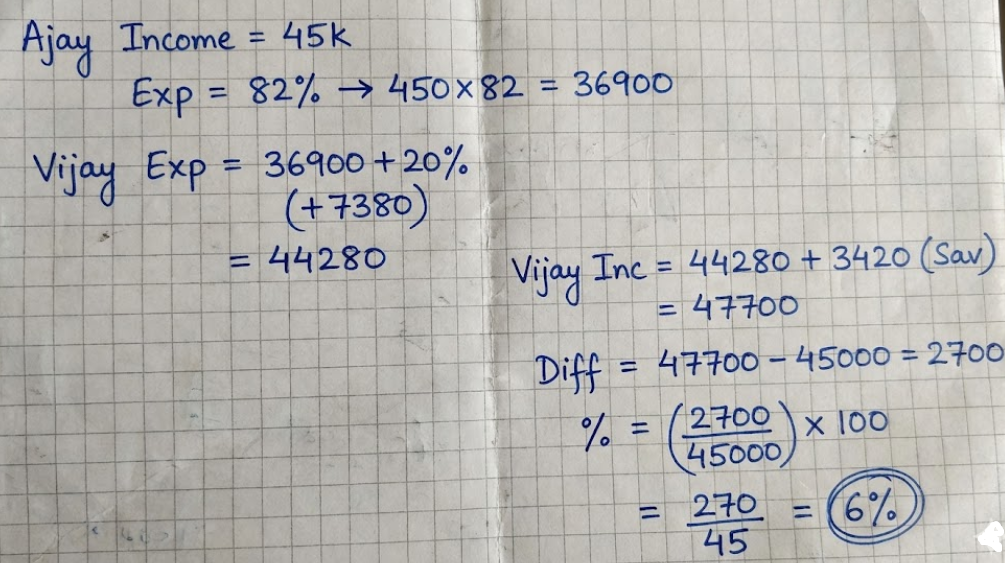 Ajay Income = 45k
Exp = 82% → 450×82 = 36900
Vijay Exp = 36900 + 20%
(+7380)
= 44280
Vijay Inc = 44280 + 3420 (Sav)
= 47700
Diff = 47700 - 45000 = 2700
% = (2700/45000) × 100
= 270/45 = 6%